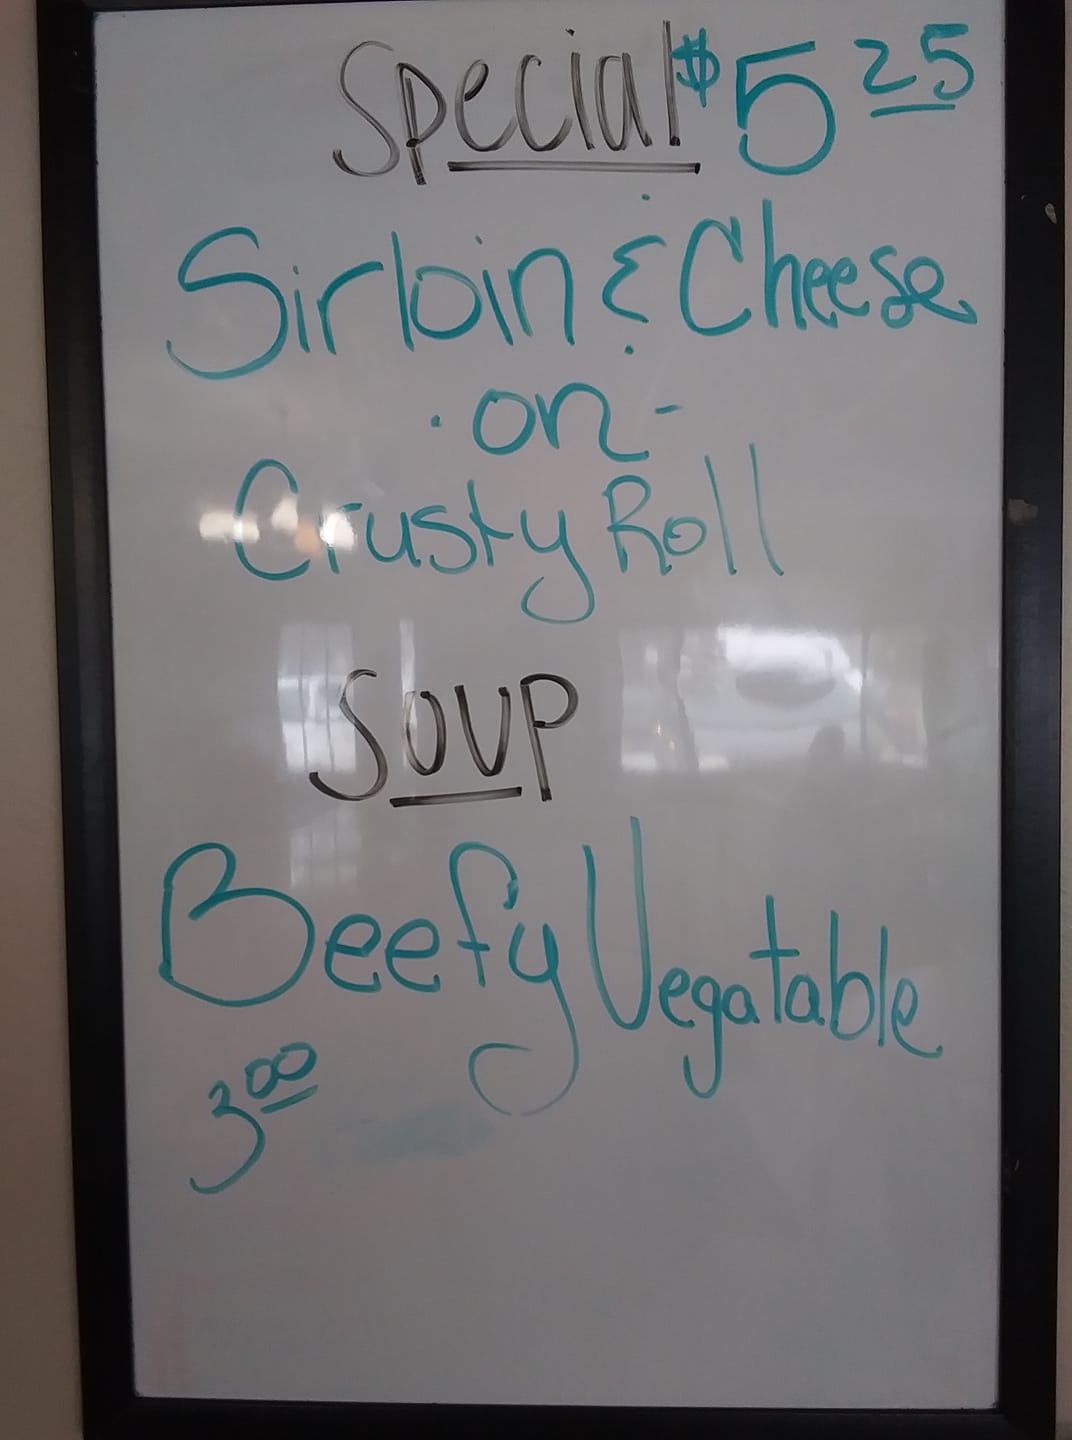 Special $5 25
Sirloin & Cheese
- on -
Crusty Roll
SOUP
Beefy Vegatable
3 00